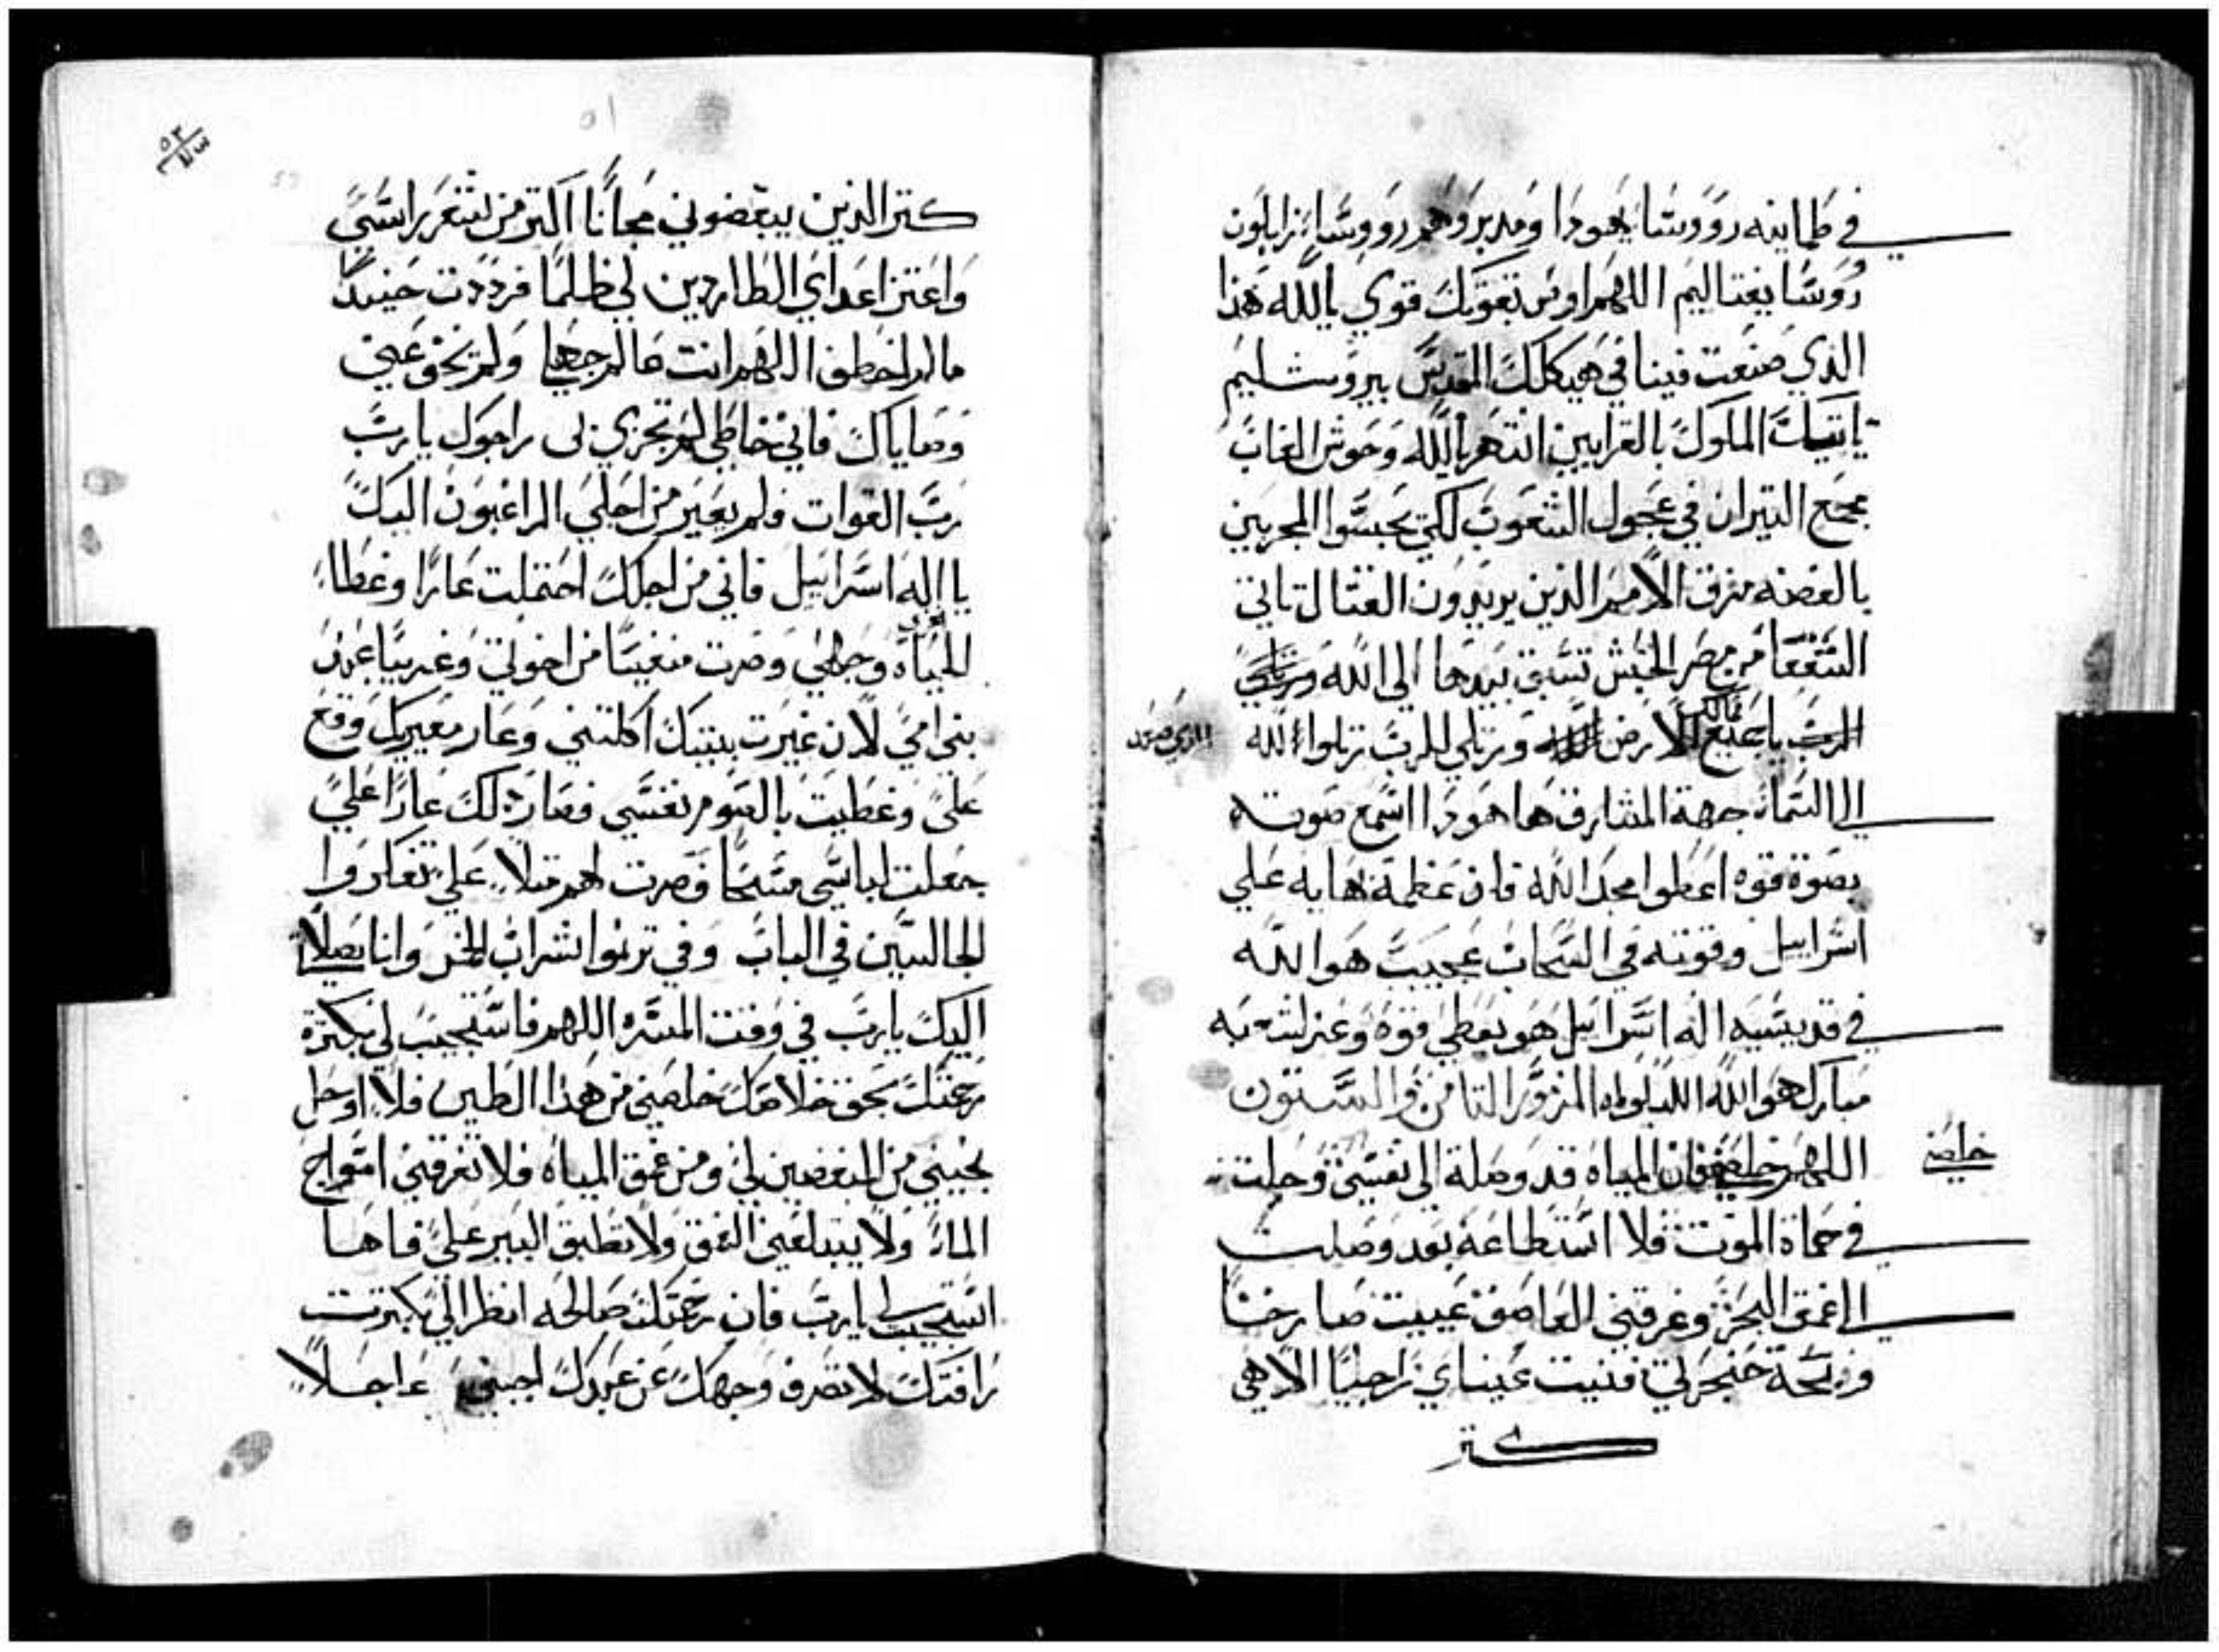 في طمانينه رووسا يهودا ومدبروهم رووسا زابلون
روسا يفتاليم اللهم اوص بقوتك قوي يالله هذا
الذي صنعت فينا في هيكلك المقدس بيروشليم
تاتيك الملوك بالقرابين انتهر يالله وحوش الغاب
مجمع التيران في عجول الشعوب لكي يحبسوا المجربين
بالفضه مزق الامم الذين يريدون القتال تاتي
الشفعا من مصر الحبش تسبق بيدها الي الله
يا ممالك الارض ورتلي للرب رتلوا لله الذي صعد
الى السماء جهة المشارق هاهودا اسمع صوته
بصوة قوه اعطوا مجدا لله فان عظمة بهايه علي
اسراييل وقوته في السحاب عجيب هو الله
في قديسيه اله اسراييل هو يعطي قوه وعز لشعبه
مبارك هو الله الليلوياه المزمور التامن والستون
اللهم خلصني فان المياه قد وصلة الي نفسي وحلت
خلصني
في حماة الموت فلا استطاعة بعد وصلت
الى اعمق البحر وغرقتني العواصف عييت صارخا
وبحة حنجرتي فنيت عيناي راجيا الاهي
كتر
٥١
كتر الذين يبغضوني مجانا اكتر من شعر راسي
واعتز اعداي الطاردين لي ظلما فرددت حينيد
ما لم اخطف اللهم انت عالم جهلي ولم تخف عني
وصاياك فاني خاطي لم تجزي بي راجوك يارب
رب القوات فلم يعير من اجلي الراغبون اليك
يا اله اسراييل فاني من اجلك احتملت عارا وغطا
الحياه وجهي وصرت منغيبا من اخوتي وغريبا عند
بني امي لان غيرت بيتك اكلتني وعار معيريك وقع
علي وغطيت بالصوم نفسي فصار ذلك عارا علي
جعلت لباسي مسحا فصرت لهم متلا علي تفكروا
الجالسين في الباب وفي ترنموا شراب الخمر وانا بصلاة
اليك يارب في وقت المسره اللهم فاستجيب لي بكترة
رحمتك بحق خلاصك خلصني من هذا الطين فلا اوحل
نجيني من المبغضين لي ومن عمق المياه فلا تغرقني امواج
الماء ولا يبتلعني العمق ولا تطبق البير علي فاها
استجيب لي يارب فان رحمتك صالحه انظر الي بكترت
رافتك لا تصرف وجهك عن عبدك اجبني عاجلا